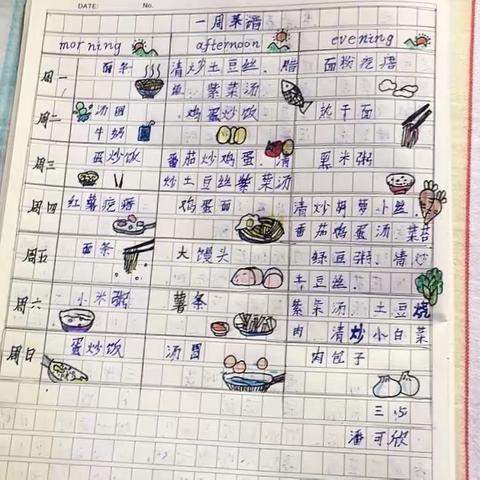 DATE: No.
一周菜谱
morning afternoon evening
周一 面条 清炒土豆丝、腊 面粉疙瘩
鱼 紫菜汤
周二 汤圆 鸡蛋炒饭 热干面
牛奶
周三 蛋炒饭 番茄炒鸡蛋、清 黑米粥
炒土豆丝紫菜汤
周四 红薯疙瘩 鸡蛋面 清炒胡萝卜丝、
番茄鸡蛋汤
周五 面条 大馒头 绿豆粥、清炒
土豆丝、
周六 小米粥 薯条 紫菜汤 土豆烧
肉 清炒小白菜
周日 蛋炒饭 汤圆 肉包子
三、5
潘可欣